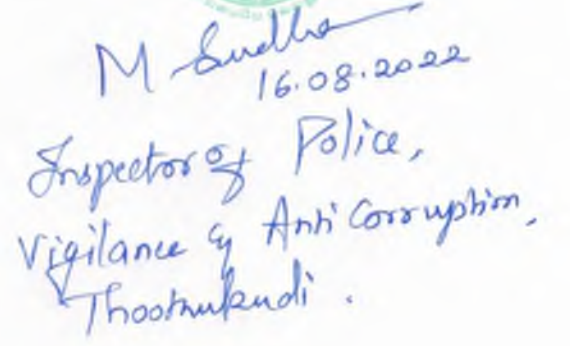 M Sudha
16.08.2022
Inspector of Police,
Vigilance & Anti Corruption,
Thoothukudi.